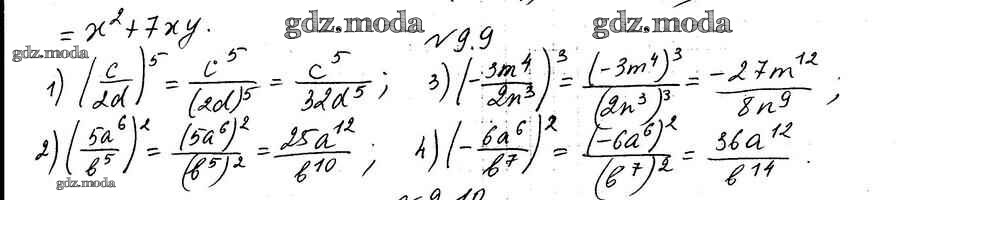 = x² + 7xy.
gdz.moda gdz.moda
gdz.moda
№ 9.9
1) (c/2d)⁵ = c⁵/(2d)⁵ = c⁵/32d⁵ ; 3) (-3m⁴/2n³)³ = (-3m⁴)³/(2n³)³ = -27m¹²/8n⁹ ;
2) (5a⁶/b⁵)² = (5a⁶)²/(b⁵)² = 25a¹²/b¹⁰ ; 4) (-6a⁶/b⁷)² = (-6a⁶)²/(b⁷)² = 36a¹²/b¹⁴ .
gdz.moda